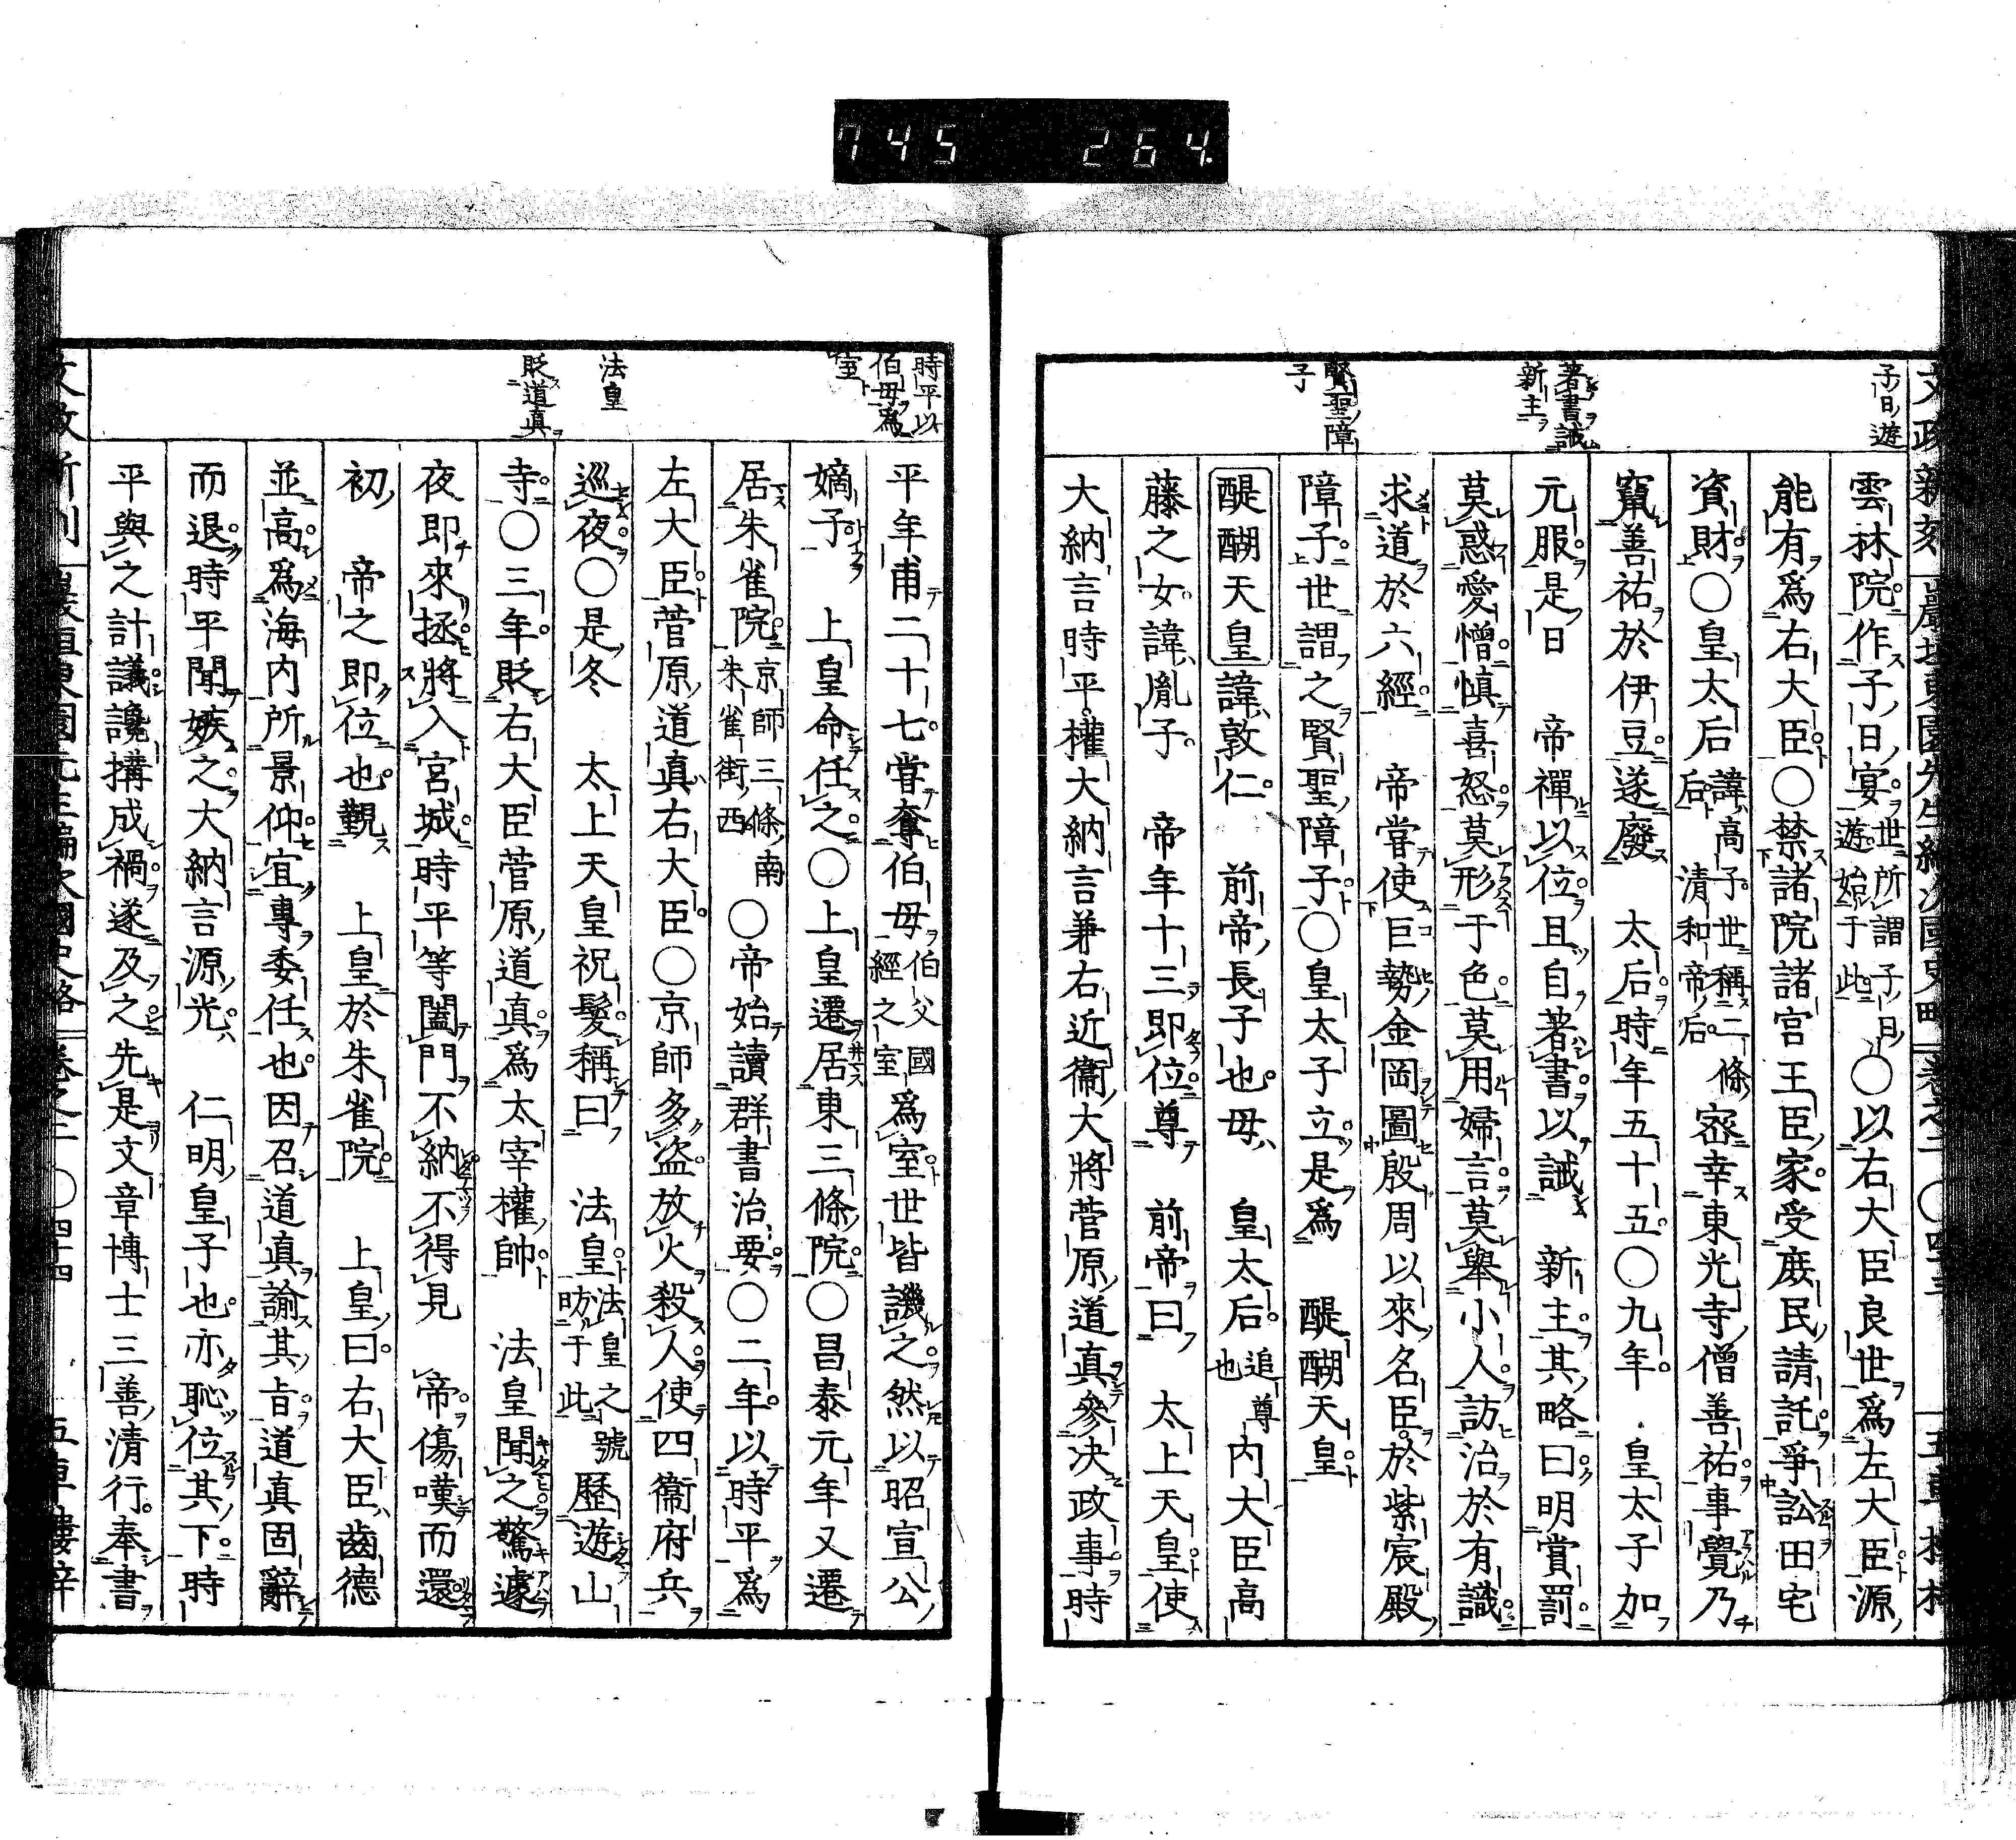 745 264.
子日遊
著書誡
新主
賢聖障
子
雲林院作子日宴世所謂子日遊始于此○以右大臣良世爲左大臣源
能有爲右大臣○禁諸院諸宮王臣家受庻民請託爭訟田宅
資財○皇太后諱高子世稱二條后清和帝后宻幸東光寺僧善祐事覺乃
竄善祐於伊豆遂廢　太后時年五十五○九年　皇太子加
元服是日　帝禪以位且自著書以誡　新主其略曰明賞罰
莫惑愛憎慎喜怒莫形于色莫用婦言莫舉小人訪治於有識
求道於六經　帝甞使巨勢金岡圖殷周以來名臣於紫宸殿
障子世謂之賢聖障子○皇太子立是爲　醍醐天皇
醍醐天皇諱敦仁　前帝長子也母　皇太后追尊也內大臣高
藤之女諱胤子　帝年十三即位尊　前帝曰　太上天皇使
大納言時平權大納言兼右近衞大將菅原道真參决政事時
時平以
伯母爲
室
法皇
貶道真
平年甫二十七甞奪伯母伯父國經之室爲室世皆譏之然以昭宣公
嫡子　上皇命任之○上皇遷居東三條院○昌泰元年又遷
居朱雀院京師三條南朱雀街西○帝始讀群書治要○二年以時平爲
左大臣菅原道真右大臣○京師多盜放火殺人使四衞府兵
巡夜○是冬　太上天皇祝髮稱曰　法皇法皇之號昉于此歷遊山
寺○三年貶右大臣菅原道真爲太宰權帥　法皇聞之驚遽
夜即來拯將入宮城時平等闔門不納不得見　帝傷嘆而還
初　帝之即位也覲　上皇於朱雀院　上皇曰右大臣齒德
並高爲海内所景仰宜專委任也因召道真諭其旨道真固辭
而退時平聞嫉之大納言源光　仁明皇子也亦恥位其下時
平與之計議讒搆成禍遂及之先是文章博士三善清行奉書